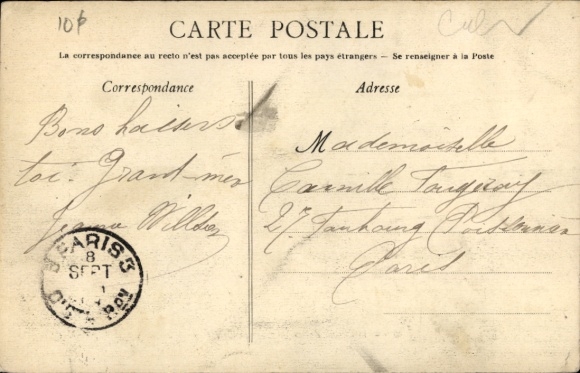 10f
CARTE POSTALE
La correspondance au recto n'est pas acceptée par tous les pays étrangers — Se renseigner à la Poste
Correspondance
Adresse
Bons baisers
toi Grand-mèr
Mademoiselle
Camille
27 Faubourg Poissonnière
Paris
PARIS 3
8
SEPT